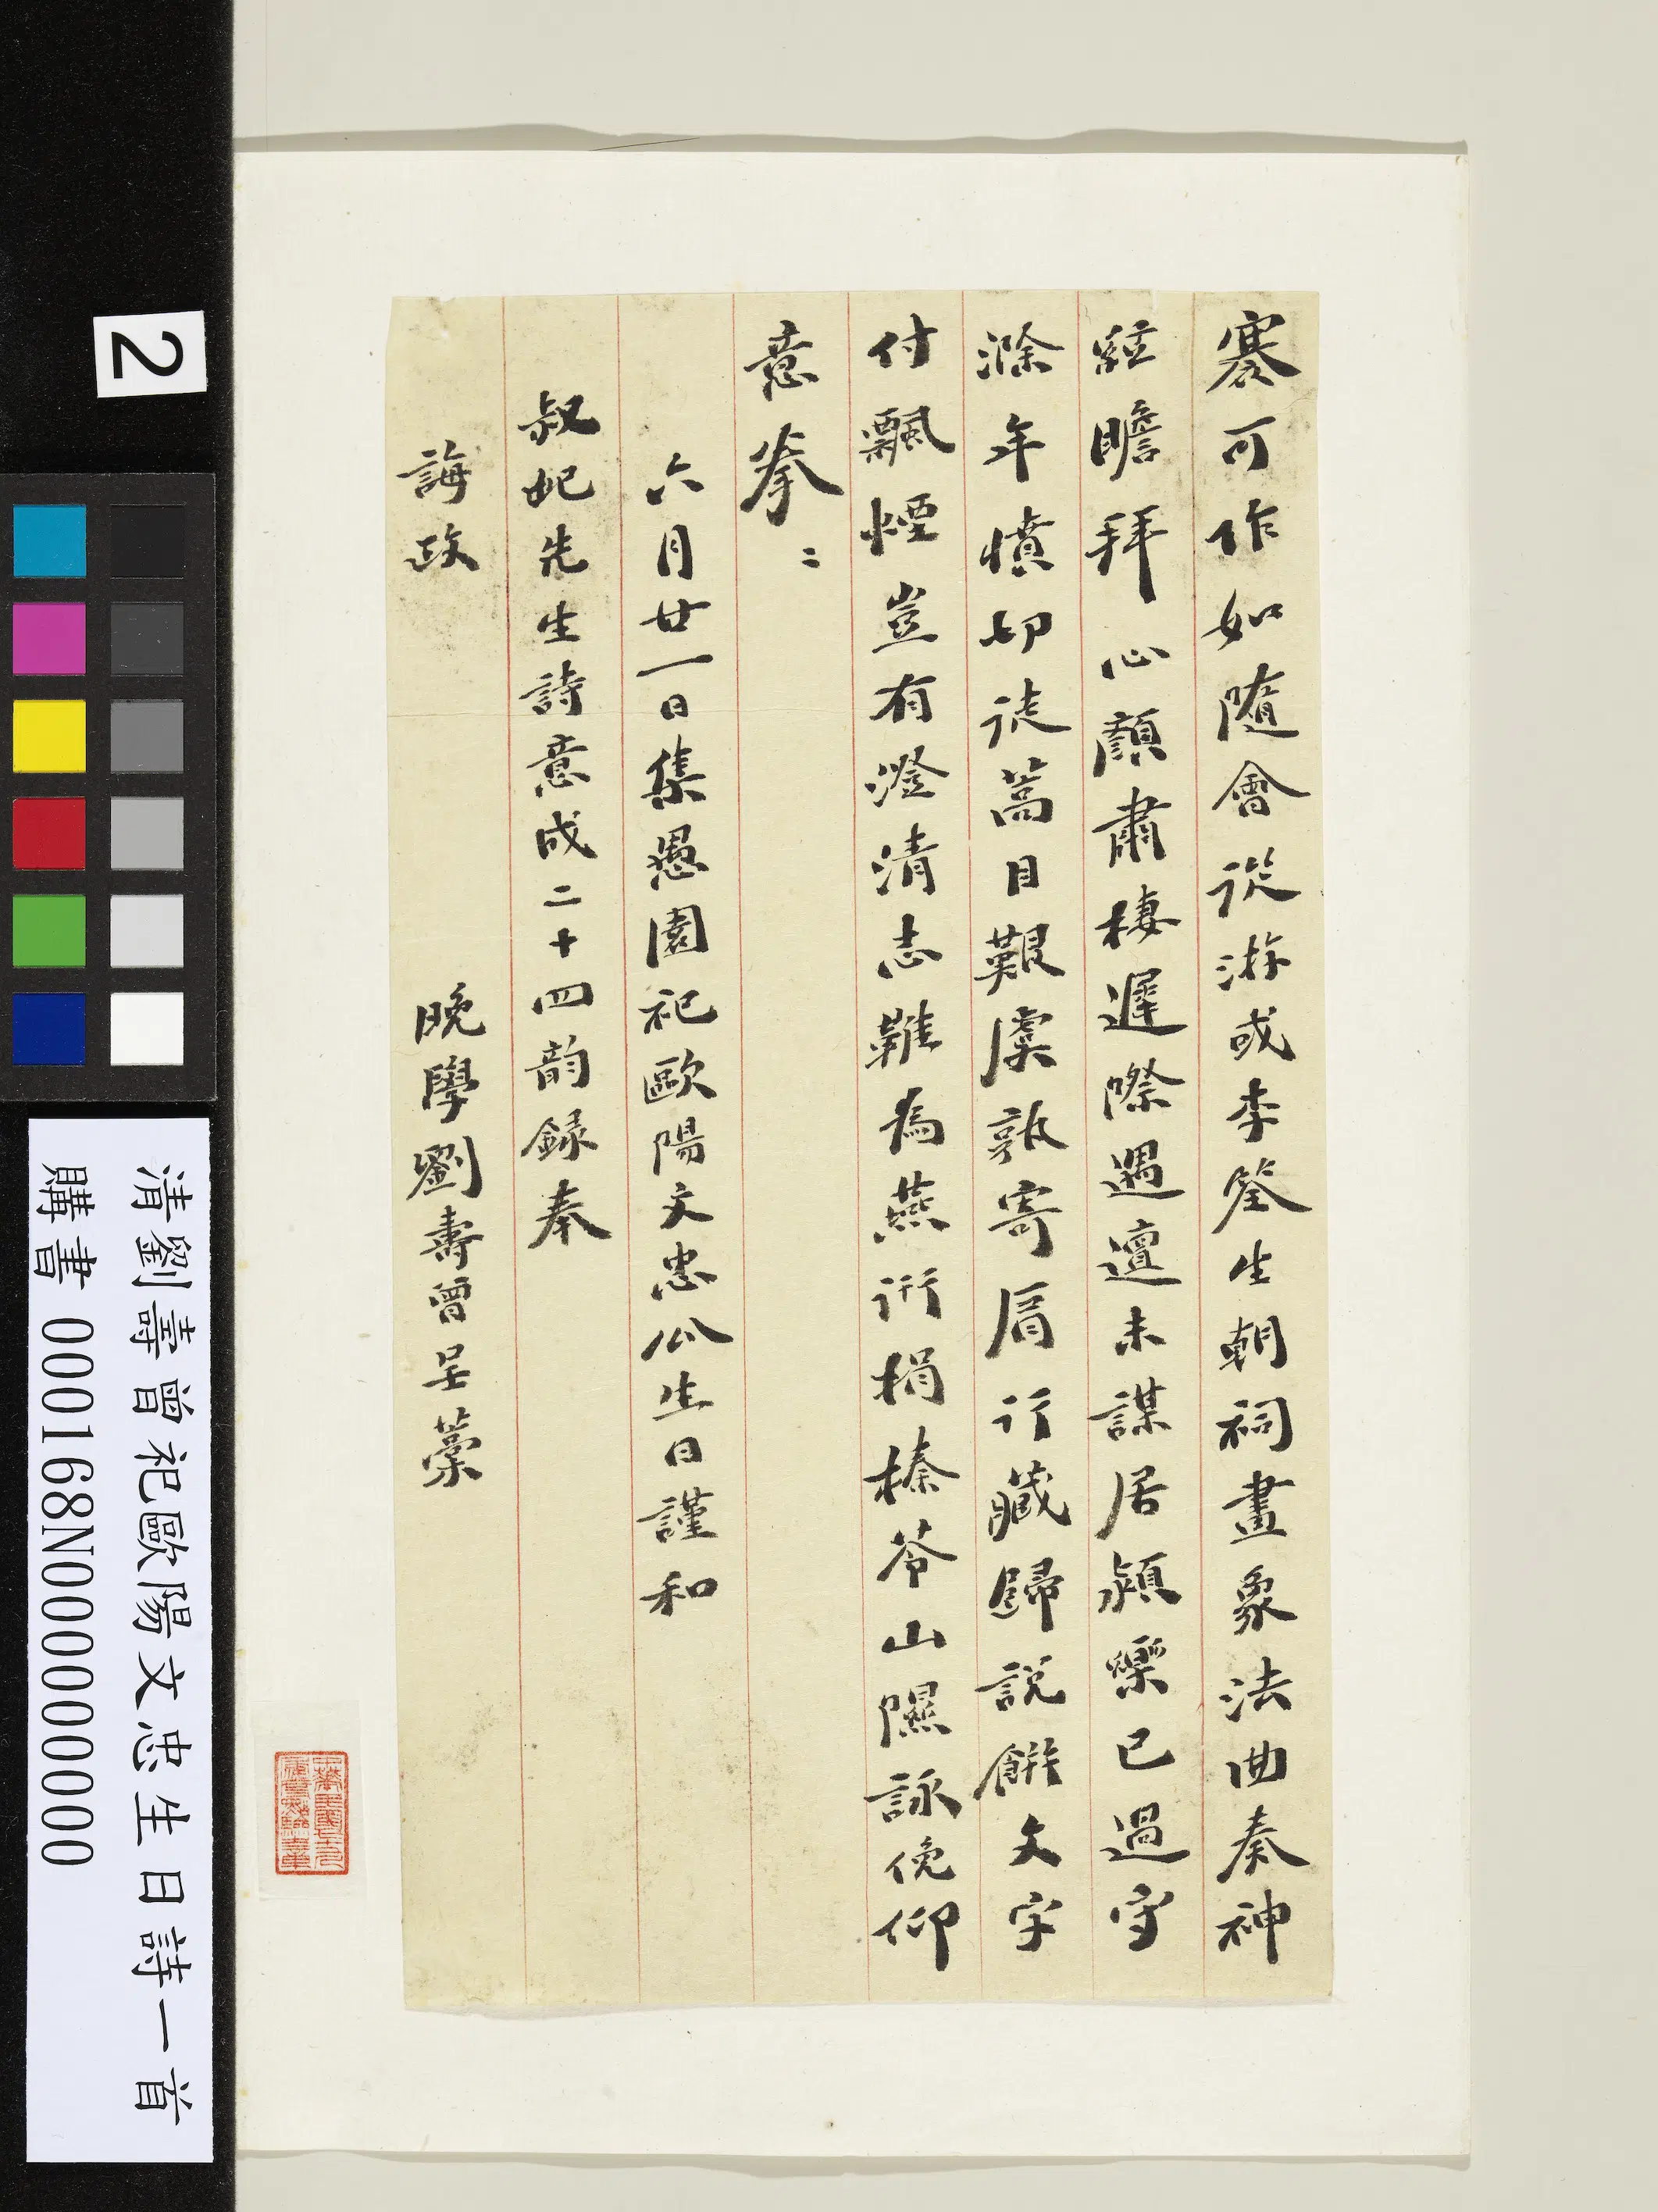 褰可作如隨會從游或李筌生朝祠畫象法曲奏神
絃瞻拜心顏肅棲遲際遇邅未謀居潁樂已過守
滁年憤切徒蒿目艱虞孰寄肩行藏歸說餅文字
付飄煙豈有澄清志難為燕衎捐榛苓山隰詠俛仰
意拳〻
六月廿一日集愚園祀歐陽文忠公生日謹和
叔妃先生詩意成二十四韵錄奉
誨政
晚學劉壽曾呈藁
2
清劉壽曾祀歐陽文忠生日詩一首
購書 000168N000000000